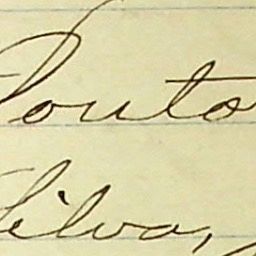 Pouto
Silva,